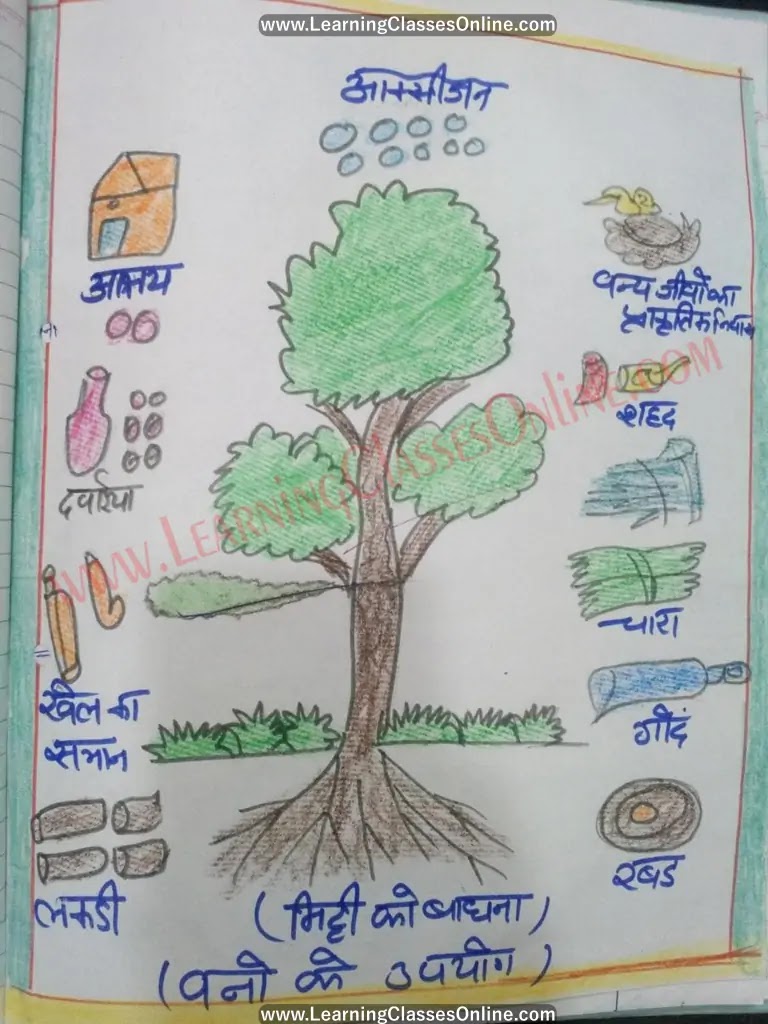 www.LearningClassesOnline.com
आक्सीजन
आलय
वन्य जीवों का
प्राकृतिक निवास
शहद
दवाईया
चारा
खेल का
समान
गोंद
लकडी
रबड
(मिट्टी को बाधना)
(वनो के उपयोग)
www.LearningClassesOnline.com
www.LearningClassesOnline.com